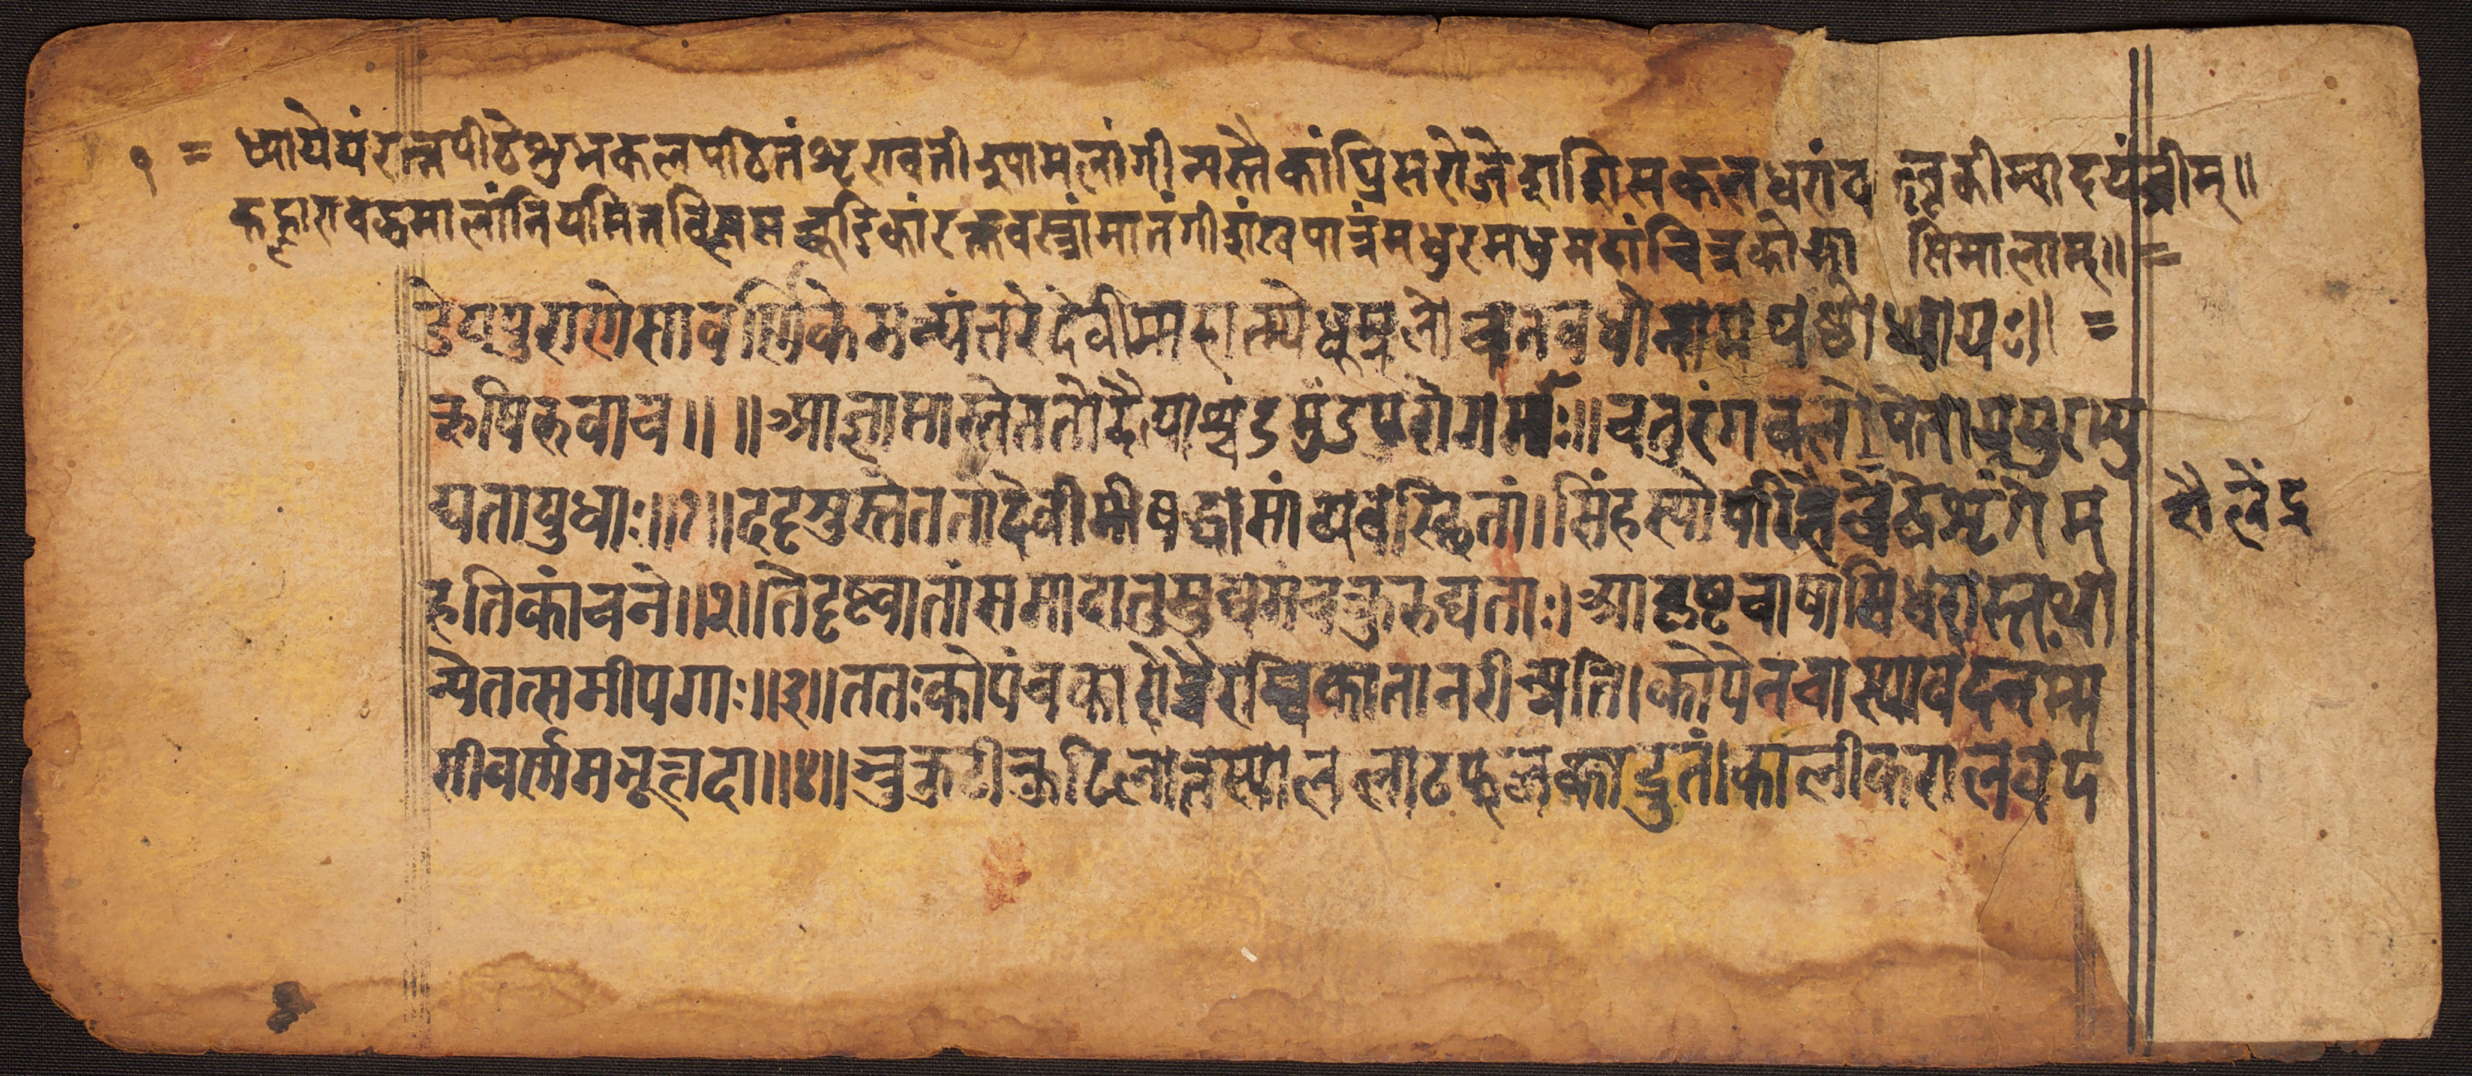 १ = ध्यायेयं रत्नपीठे शुभकलपठितं शृण्वतीं श्यामलांगीं न्यस्तैकांघ्रिसरोजे शशिसकलधरां वल्लकीम्वादयंतीम्॥
कह्लाराबद्धमालांनियमितविलसच्चूडिकां रक्तवस्त्रां मातंगीं शंखपात्रं मधुरमधुमदां चित्रकोद्भासिभालाम्॥ =
डेयपुराणे सावर्णिके मन्वंतरे देवीमाहात्म्ये धूम्रलोचनवधो नाम षष्ठोध्यायः॥ =
ऋषिरुवाच॥ ॥आज्ञप्तास्ते ततो दैत्याश्चंडमुंडपुरोगमाः॥चतुरंगबलोपेता ययुरभ्यु
द्यतायुधाः॥१॥ददृशुस्ते ततो देवीमीषद्धासां व्यवस्थितां॥सिंहस्योपरि शृंगे म
शैलेंद्र
हति कांचने॥२॥ते दृष्ट्वा तां समादातुमुद्यमं चक्रुरुद्यताः।आकृष्टचापासिधरास्तथा
न्ये तत्समीपगाः॥३॥ततः कोपं चकारोच्चैरम्बिका तानरीन्प्रति।कोपेन चास्या वदनम्म
सीवर्णमभूत्तदा॥४॥भ्रुकुटीकुटिलात्तस्या ललाटफलकाद्द्रुतं।काली करालवद